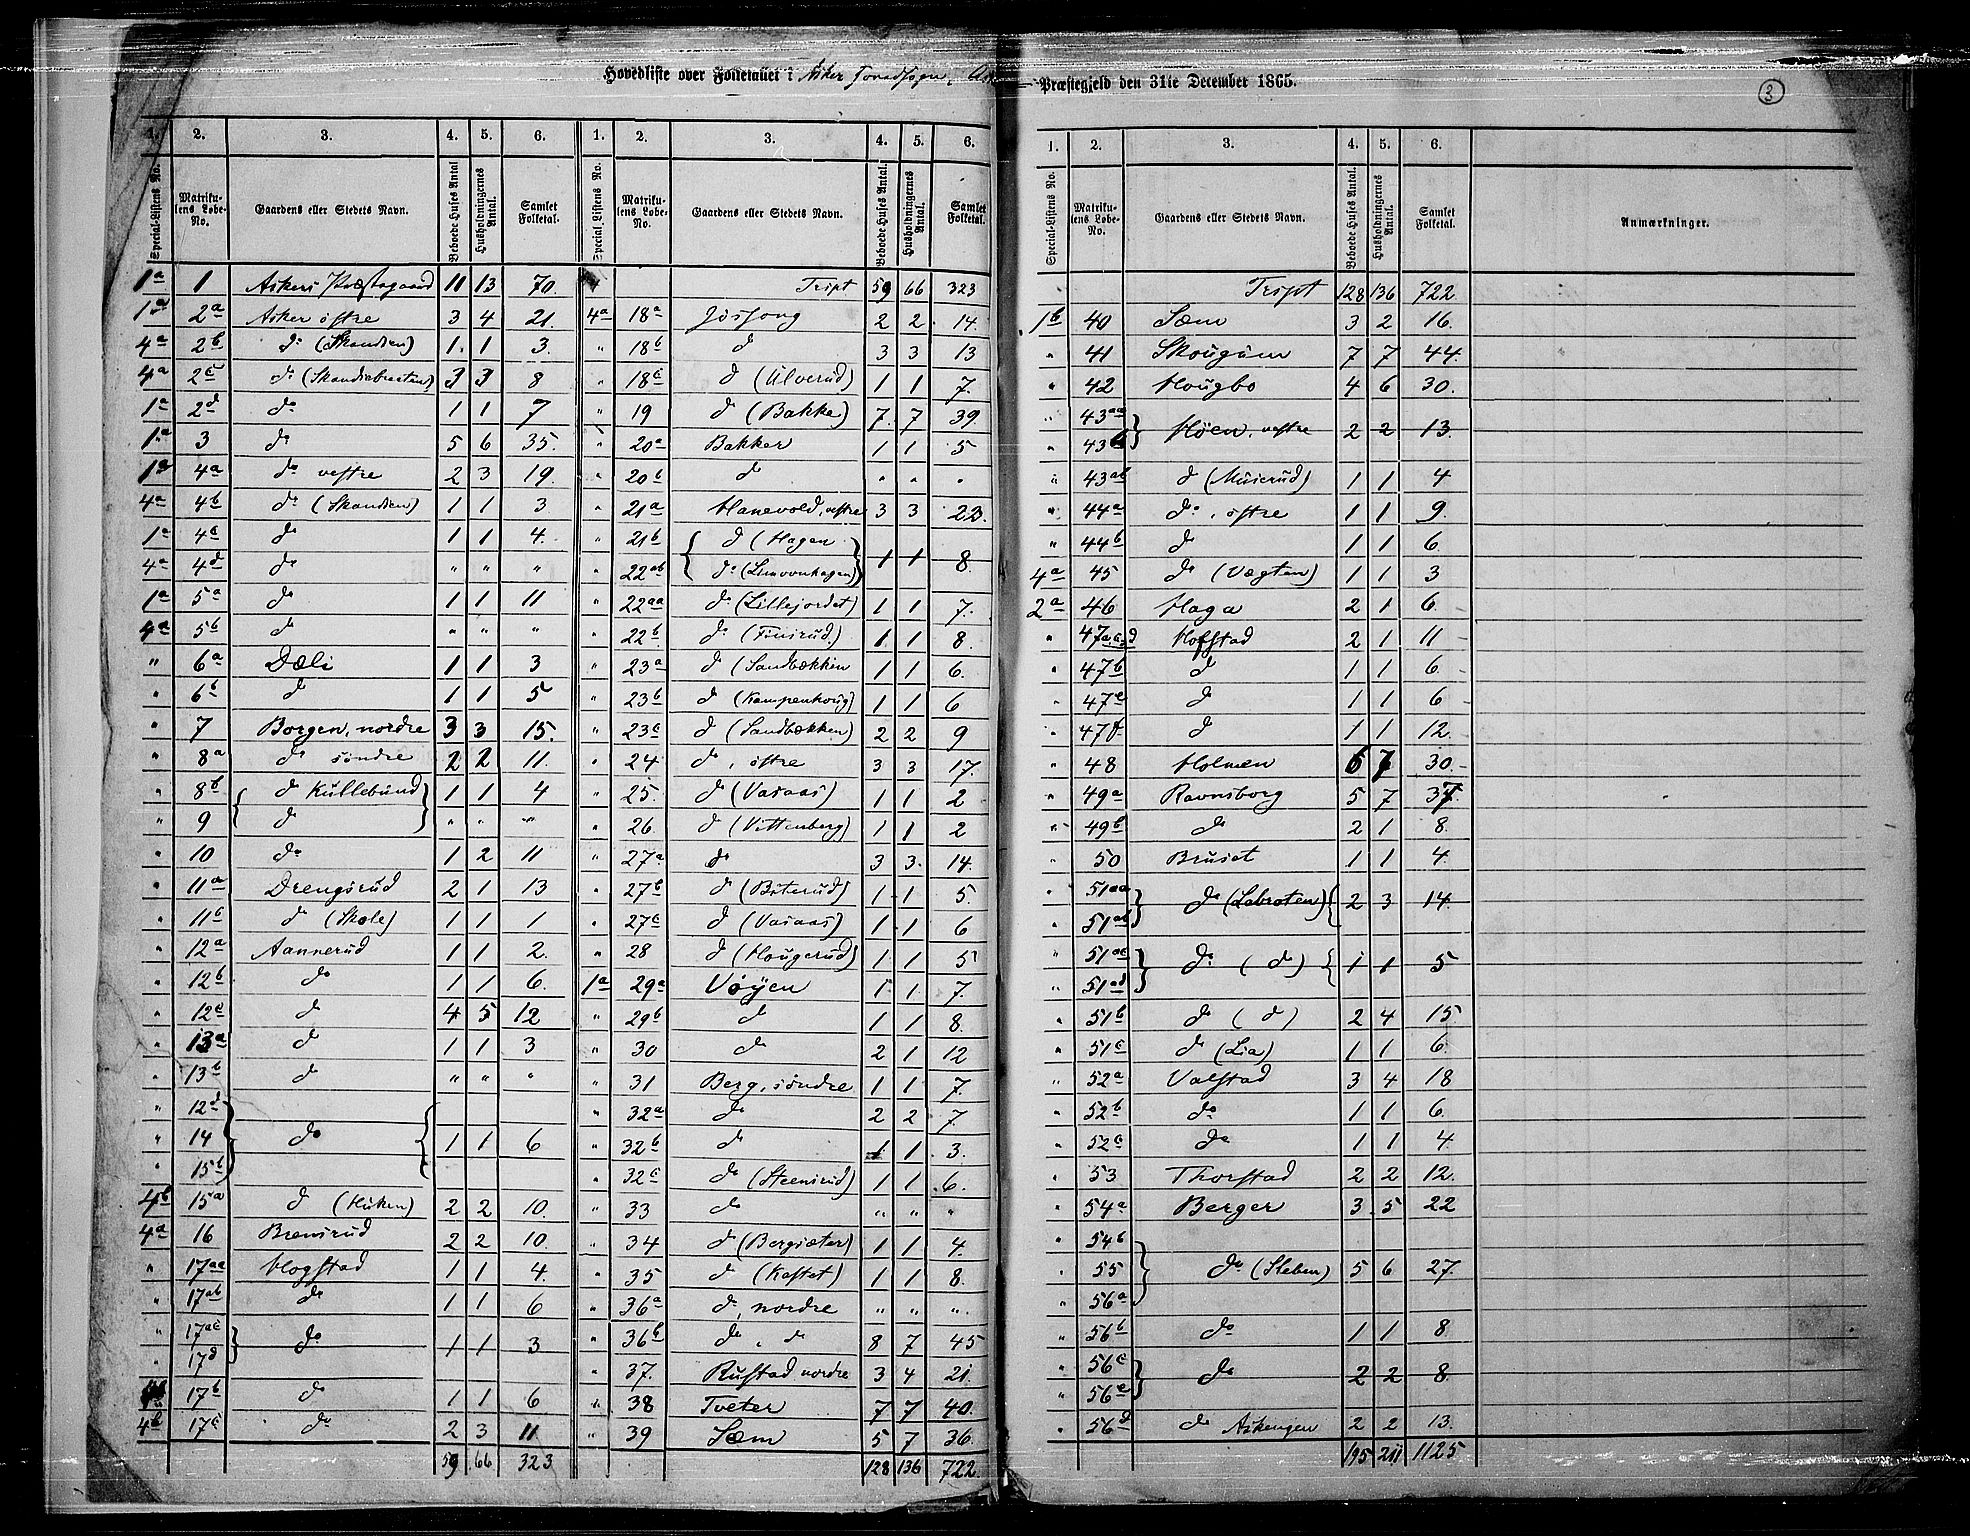 Hovedliste over Folketallet i Asker Præstegjeld den 31te December 1865.
3
1. 2. 3. 4. 5. 6. 1. 2. 3. 4. 5. 6. 1. 2. 3. 4. 5. 6.
Special-Listens No. Matrikulens Løbe-No. Gaardens eller Stedets Navn. Beboede Huses Antal Husholdningernes Antal. Samlet Folketal. Special Listens No. Matrikulens Løbe-No. Gaardens eller Stedets Navn. Beboede Huses Antal. Husholdningernes Antal. Samlet Folketal. Special-Listens No. Matrikulens Løbe-No. Gaardens eller Stedets Navn. Beboede Huses Antal. Husholdningernes Antal. Samlet Folketal. Anmærkninger.
1a 1 Askers Præstegaard 11 13 70.
1a 2a Asker østre 3 4 21.
4a 2b do (Skandsen) 1 1 3.
4a 2c do (Skandsebraaten) 3 3 8
1a 2d do 1 1 7
1a 3 do 5 6 35.
1a 4a do vestre 2 3 19.
4a 4b do (Skandsen) 1 1 3
1a 4c do 1 1 4.
4a 4d do " " "
1a 5a do 1 1 11
4a 5b do " " "
" 6a Dæli 1 1 3
" 6b do 1 1 5
" 7 Borgen, nordre 3 3 15.
" 8a do søndre 2 2 11.
" 8b do Kullebund 1 1 4
" 9 do " " "
" 10 do 1 2 11
" 11a Drengsrud 2 1 13
" 11b do (Skole) 1 1 1
" 12a Aannerud 1 1 2.
" 12b do 1 1 6.
" 12c do 4 5 12
" 13a do 1 1 3
" 13b do " " "
" 12d
" 14 do 1 1 6
" 15b
4b 15a do (Huken) 2 2 10.
4a 16 Brensrud 2 2 10.
" 17aa Hogstad 1 1 4.
" 17ab do 1 1 6
" 17ac do 1 1 3
" 17d
17b do 1 1 6
4b 17c do 2 3 11
59 66 323
Trspt 59 66 323
4a 18a Jøssong 2 2 14.
" 18b do 3 3 13
" 18c do (Ulverud) 1 1 7.
" 19 do (Bakke) 7. 7 39
" 20a Bakker 1 1 5
" 20b do " " "
" 21a Hanevold, vestre 3 3 22.
" 21b do (Hagen 1 1 8.
" 22ab do
" 22aa do (Lillejordet) 1 1 7.
" 22b do (Finsrud) 1 1 8.
" 23a do (Sandbækken 1 1 6.
" 23b do (Kampenhoug) 1 1 6
" 23c do (Sandbækken) 2 2 9
" 24 do, østre 3 3 17.
" 25. do (Vasaas) 1 1 2
" 26 do (Vittenberg) 1 1 2
" 27a do 3 3. 14.
" 27b do (Biterud) 1 1 5.
" 27c do (Vasaas) 1 1 6
" 28 do (Hougerud) 1 1 5
1a 29a Vøyen 1 1 7.
" 29b do 1 1 8.
" 30 do 2 1 12
" 31 Berg, søndre 1 1 7.
" 32a do 2 2 7.
" 32b do 1 1 3.
" 32c do (Steensrud) 1 1 6.
" 33 do " " "
" 34 do (Bergsæter) 1 1 4.
" 35 do (Kastet) 1 1 8.
" 36a do, nordre " " "
" 36b do, do 8 7 45
" 37. Rustad nordre 3 4 21.
" 38 Tveter 7 7 40.
" 39 Sæm 5 7 36.
128 136 722.
Trspt 128 136 722.
1b 40 Sæm 3 2 16.
" 41 Skougum 7 7 44.
" 42 Hougbo 4 6 30.
" 43aa Høen, vestre 2 2 13.
" 43b
" 43ab do 1 1 4
" 44a do, østre 1 1 9.
" 44b do 1 1 6.
4a 45 do (Vægten) 1 1 3
2a 46 Haga 2 1 6.
" 47a,c,d Hofstad 2 1 11
" 47b do 1 1 6.
" 47e do 1 1 6
" 47f do 1 1 12.
" 48 Holmen 6 7 30.
" 49a Ravnsborg 5 7 37.
" 49b do 2 1 8.
" 50 Bruset 1 1 4.
" 51aa do (Labraten) 2 3 14.
" 51ab
" 51ac do (do) 1 1 5
" 51ad
" 51b do (do) 2 4 15.
" 51c do (Lia) 1 1 6.
" 52a Valstad 3 4 18
" 52b do 1 1 6.
" 52c do 1 1 4
" 53 Thorstad 2 2 12.
" 54a Berger 3 5 22
" 54b
" 55 do (Sleben) 5 6 27.
" 56a
" 56b do 1 1 8
" 56c do 2 2 8.
" 56e
" 56d do Askengen 2 2 13.
195 211 1125